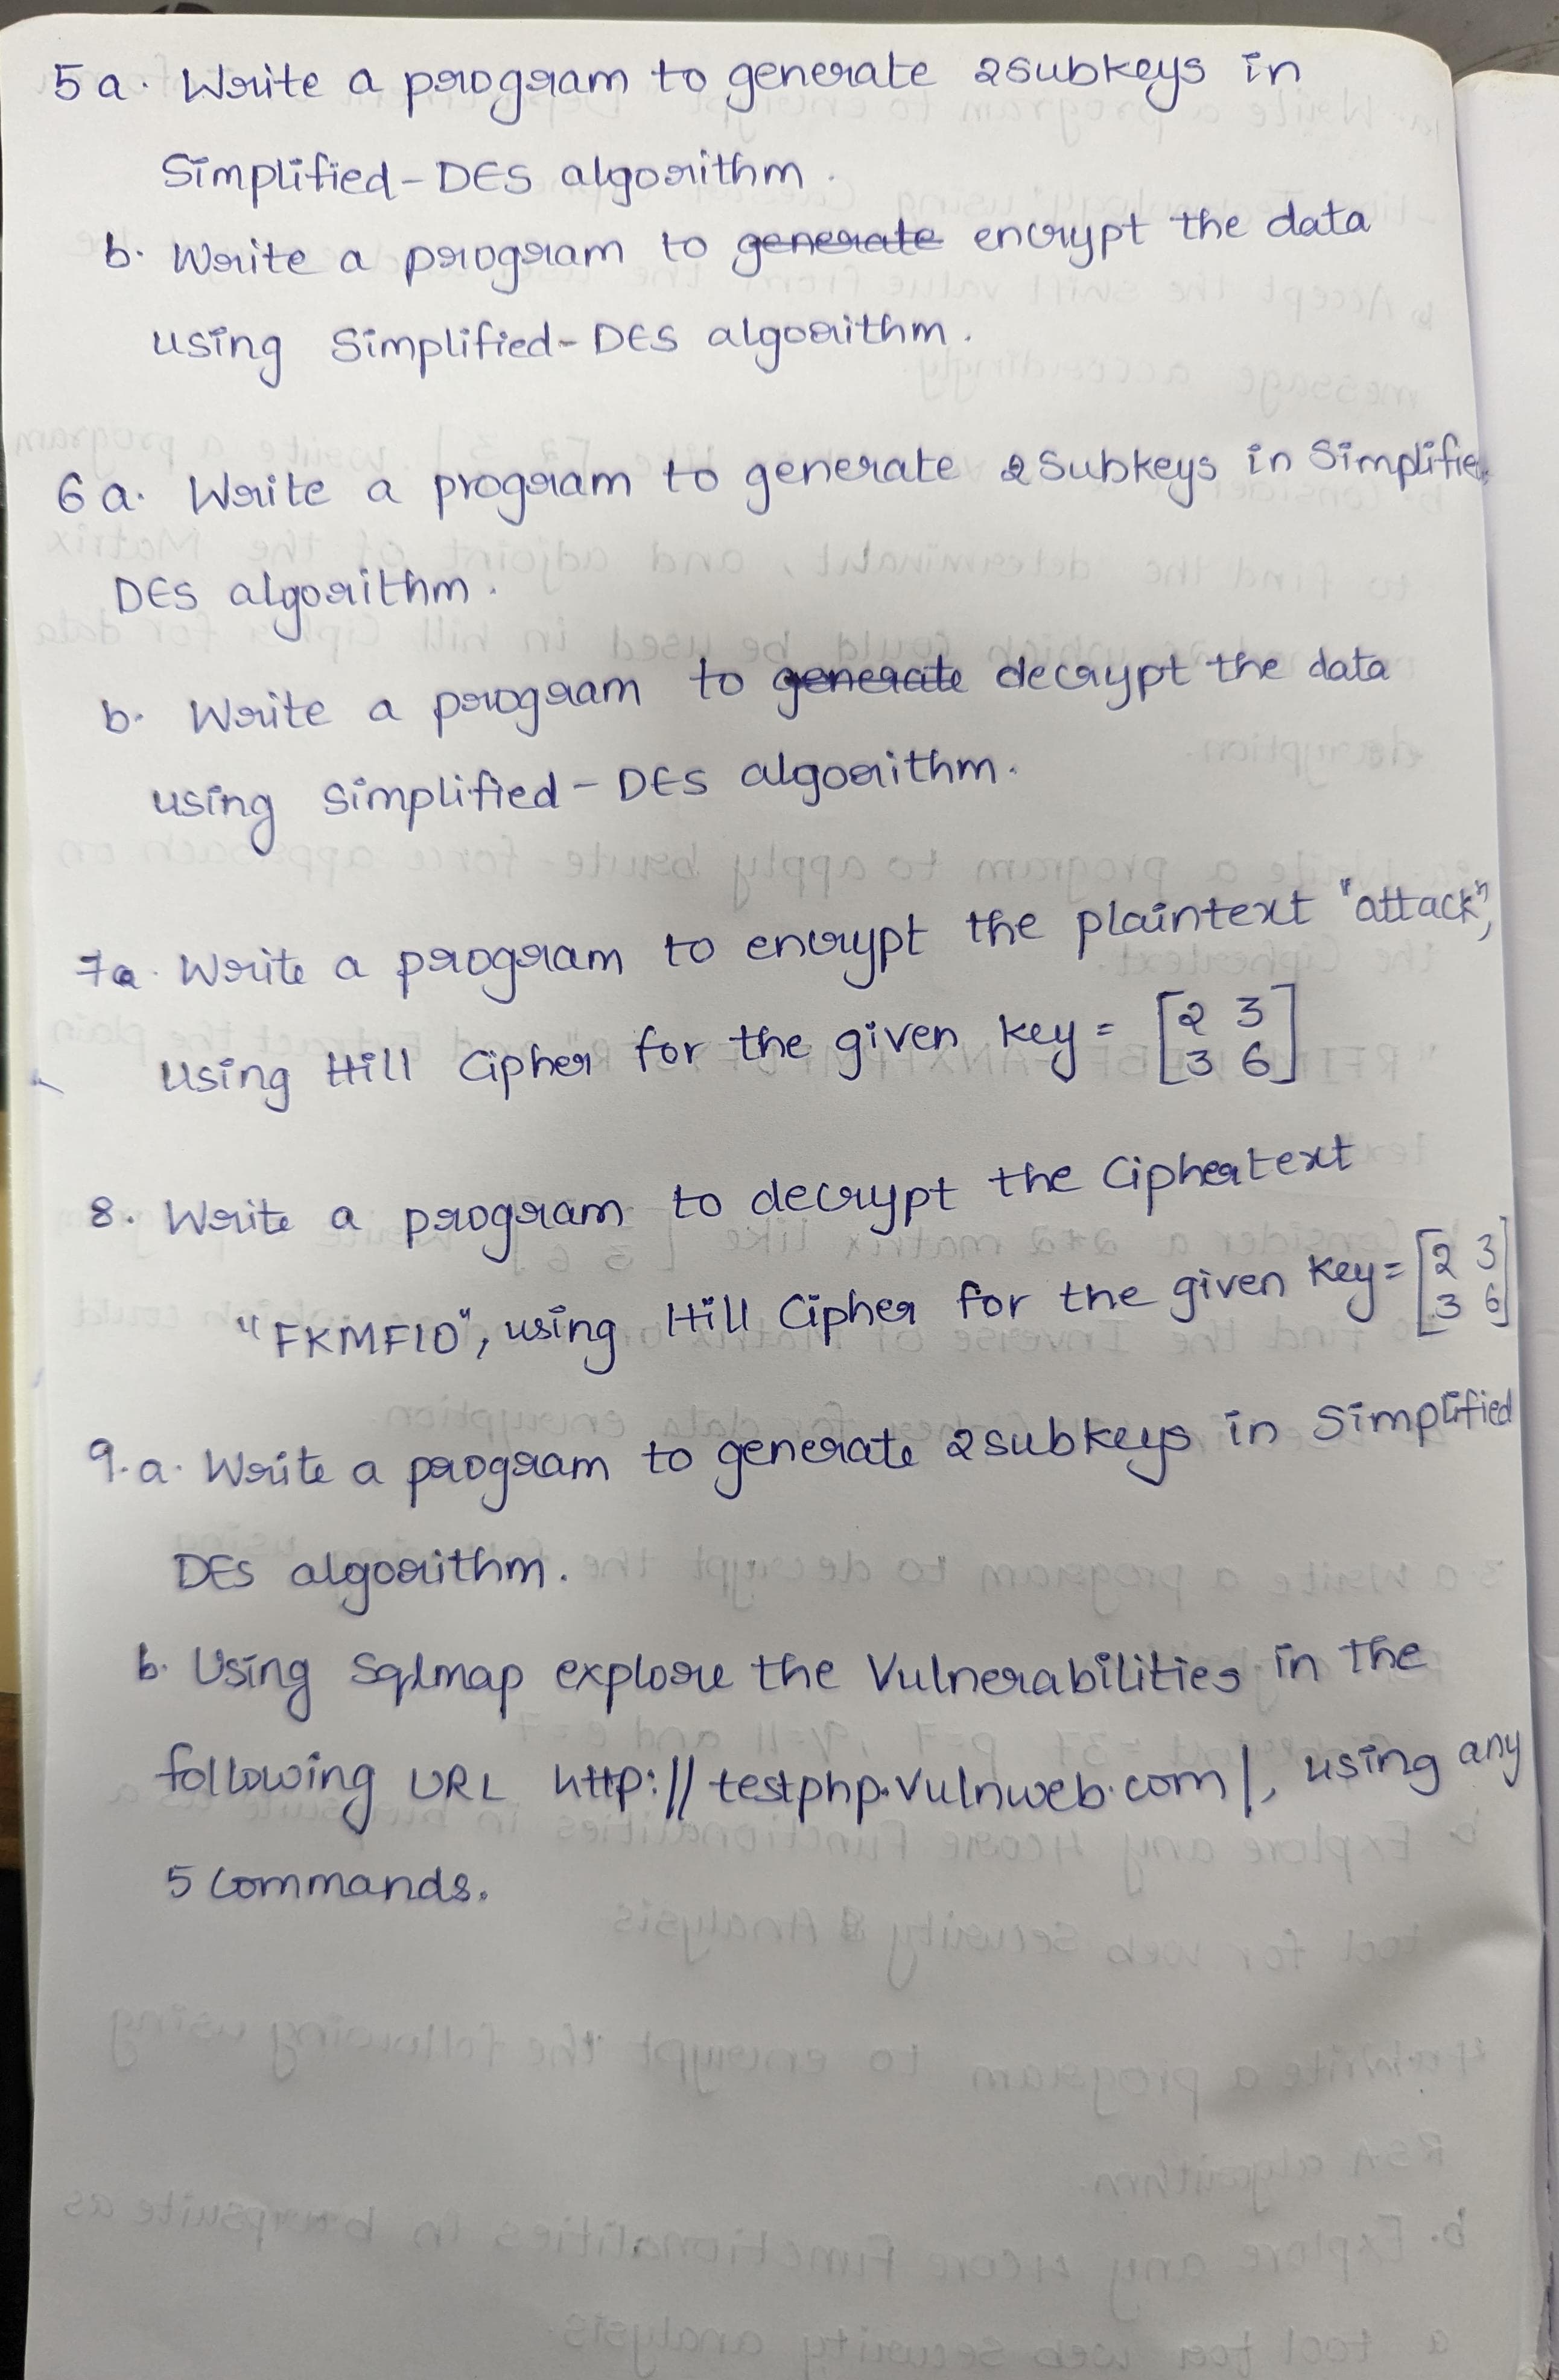 5 a. Write a program to generate 2subkeys in
Simplified-DES algorithm.
b. Write a program to generate encrypt the data
using Simplified-DES algorithm.
6 a. Write a program to generate 2 Subkeys in Simplifie
DES algorithm.
b. Write a program to generate decrypt the data
using simplified-DES algorithm.
7a. Write a program to encrypt the plaintext "attack",
using Hill Cipher for the given key = [2 3
3 6]
8. Write a program to decrypt the Ciphertext
"FKMFIO", using Hill Cipher for the given key = [2 3
3 6]
9.a. Write a program to generate 2subkeys in Simplified
DES algorithm.
b. Using Sqlmap explore the Vulnerabilities in the
following URL http://testphp.vulnweb.com/, using any
5 Commands.